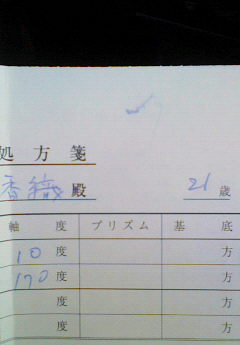 処方箋
香織殿 21歳
軸度 プリズム 基底
10度 方
170度 方
度 方
度 方